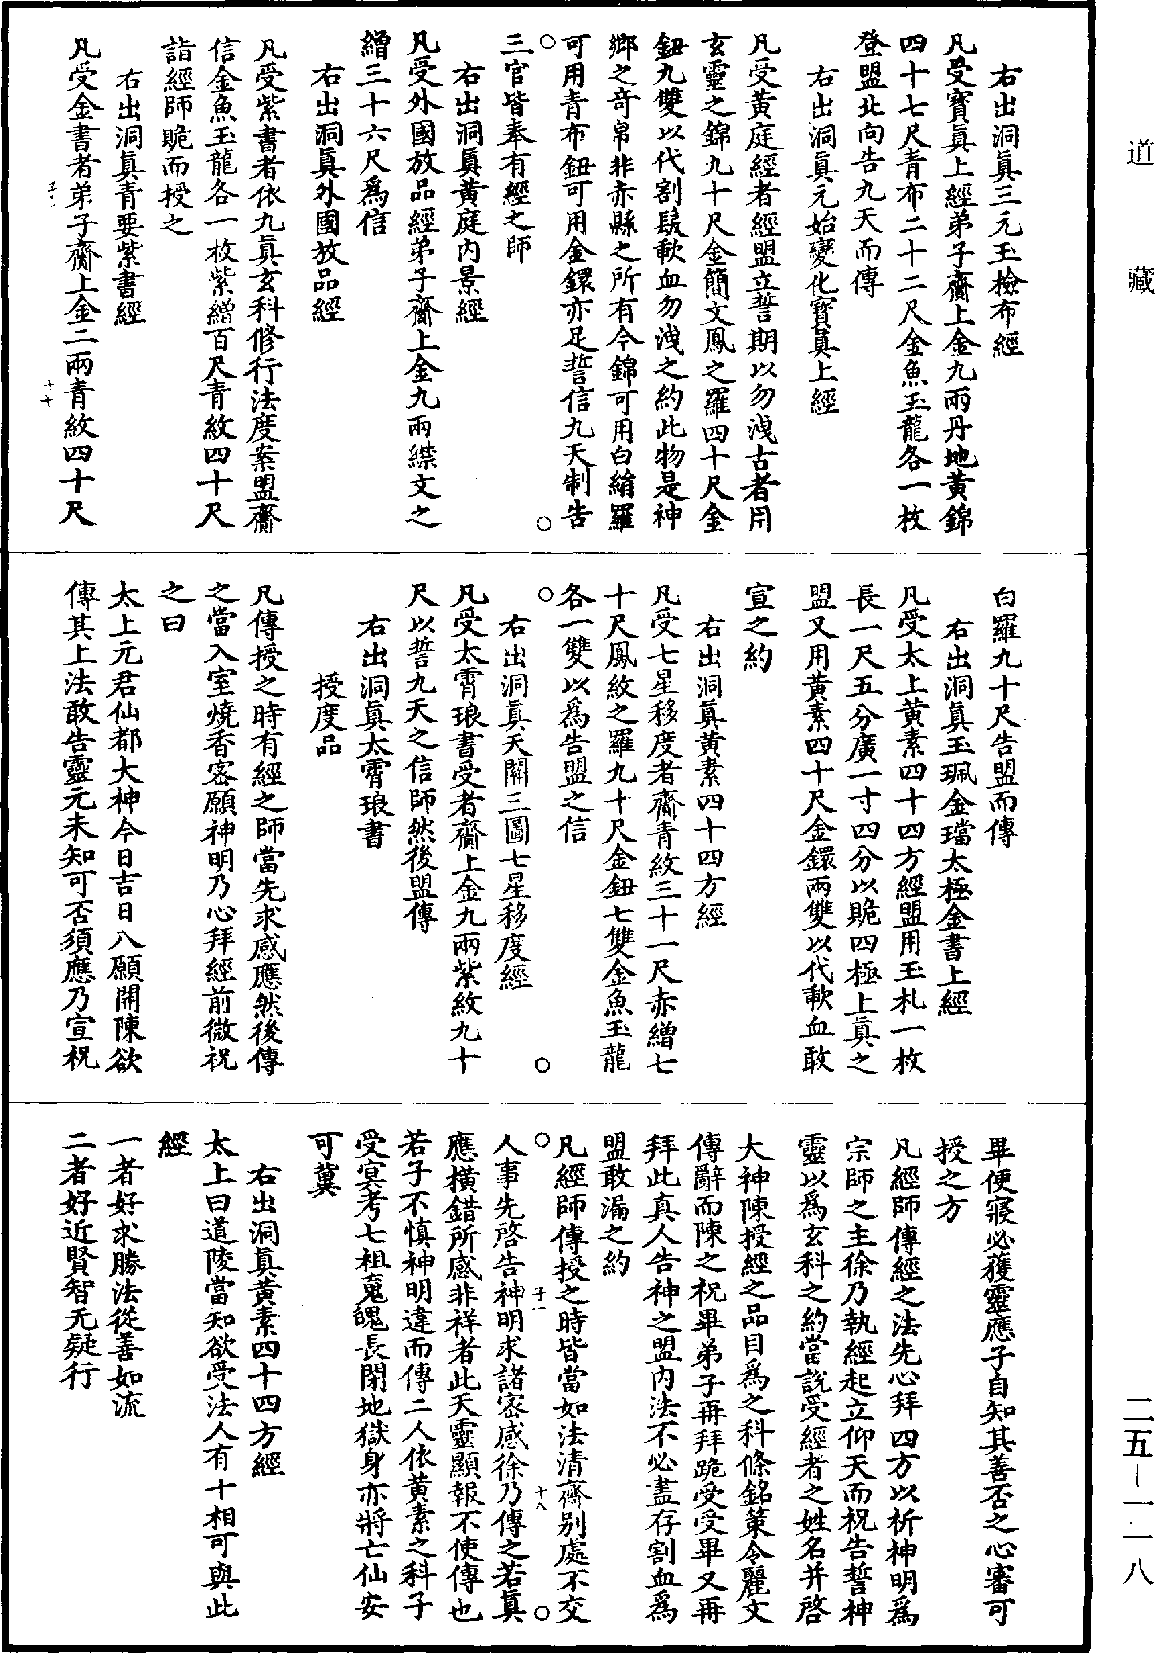 道藏
右出洞真三元玉檢布經
凡受寶真上經弟子齎上金九兩丹地黃錦
四十七尺青布二十二尺金魚玉龍各一枚
登盟北向告九天而傳
右出洞真元始變化寶真上經
凡受黃庭經者經盟立誓期以勿洩古者用
玄靈之錦九十尺金簡文鳳之羅四十尺金
鈕九雙以代割髮歃血勿洩之約此物是神
鄉之奇帛非赤縣之所有今錦可用白絹羅
可用青布鈕可用金鐶亦足誓信九天制告
三官皆奉有經之師
右出洞真黃庭內景經
凡受外國放品經弟子齎上金九兩緤文之
繒三十六尺為信
右出洞真外國放品經
凡受紫書者依九真玄科修行法度案盟齎
信金魚玉龍各一枚紫繒百尺青紋四十尺
詣經師跪而授之
右出洞真青要紫書經
凡受金書者弟子齎上金二兩青紋四十尺
十七
白羅九十尺告盟而傳
右出洞真玉珮金璫太極金書上經
凡受太上黃素四十四方經盟用玉札一枚
長一尺五分廣一寸四分以跪四極上真之
盟又用黃素四十尺金鐶兩雙以代歃血敢
宣之約
右出洞真黃素四十四方經
凡受七星移度者齎青紋三十一尺赤繒七
十尺鳳紋之羅九十尺金鈕七雙金魚玉龍
各一雙以為告盟之信
右出洞真天關三圖七星移度經
凡受太霄琅書受者齎上金九兩紫紋九十
尺以誓九天之信師然後盟傳
右出洞真太霄琅書
授度品
凡傳授之時有經之師當先求感應然後傳
之當入室燒香密願神明乃心拜經前微祝
之曰
太上元君仙都大神今日吉日八願開陳欲
傳其上法敢告靈元未知可否須應乃宣祝
畢便寢必獲靈應子自知其善否之心審可
授之方
凡經師傳經之法先心拜四方以祈神明為
宗師之主徐乃執經起立仰天而祝告誓神
靈以為玄科之約當說受經者之姓名并啓
大神陳授經之品目為之科條銘策令麗文
傳辭而陳之祝畢弟子再拜跪受受畢又再
拜此真人告神之盟內法不必盡存割血為
盟敢漏之約
凡經師傳授之時皆當如法清齋別處不交
人事先啓告神明求諸密感徐乃傳之若真
應橫錯所感非祥者此天靈顯報不使傳也
若子不慎神明違而傳二人依黃素之科子
受冥考七祖䰟魄長閉地獄身亦將亡仙安
可冀
右出洞真黃素四十四方經
太上曰道陵當知欲受法人有十相可與此
經
一者好求勝法從善如流
二者好近賢智无疑行
十八
二五－一一八